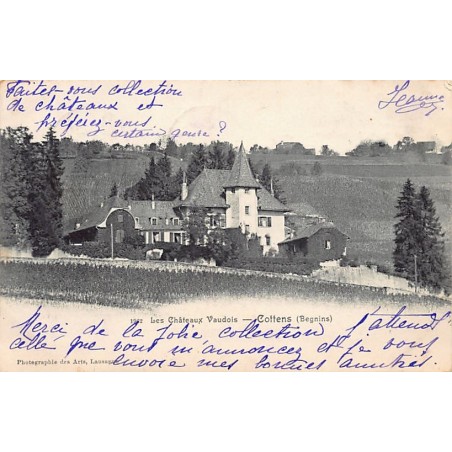 Faites-vous collection
de châteaux et
préférez-vous
certain genre ?
Jeanne
Les Châteaux Vaudois — Cottens (Begnins)
Merci de la jolie collection j'attends
celle que vous m'annoncez et je vous
envoie mes bonnes amitiés.
Photographie des Arts, Lausanne